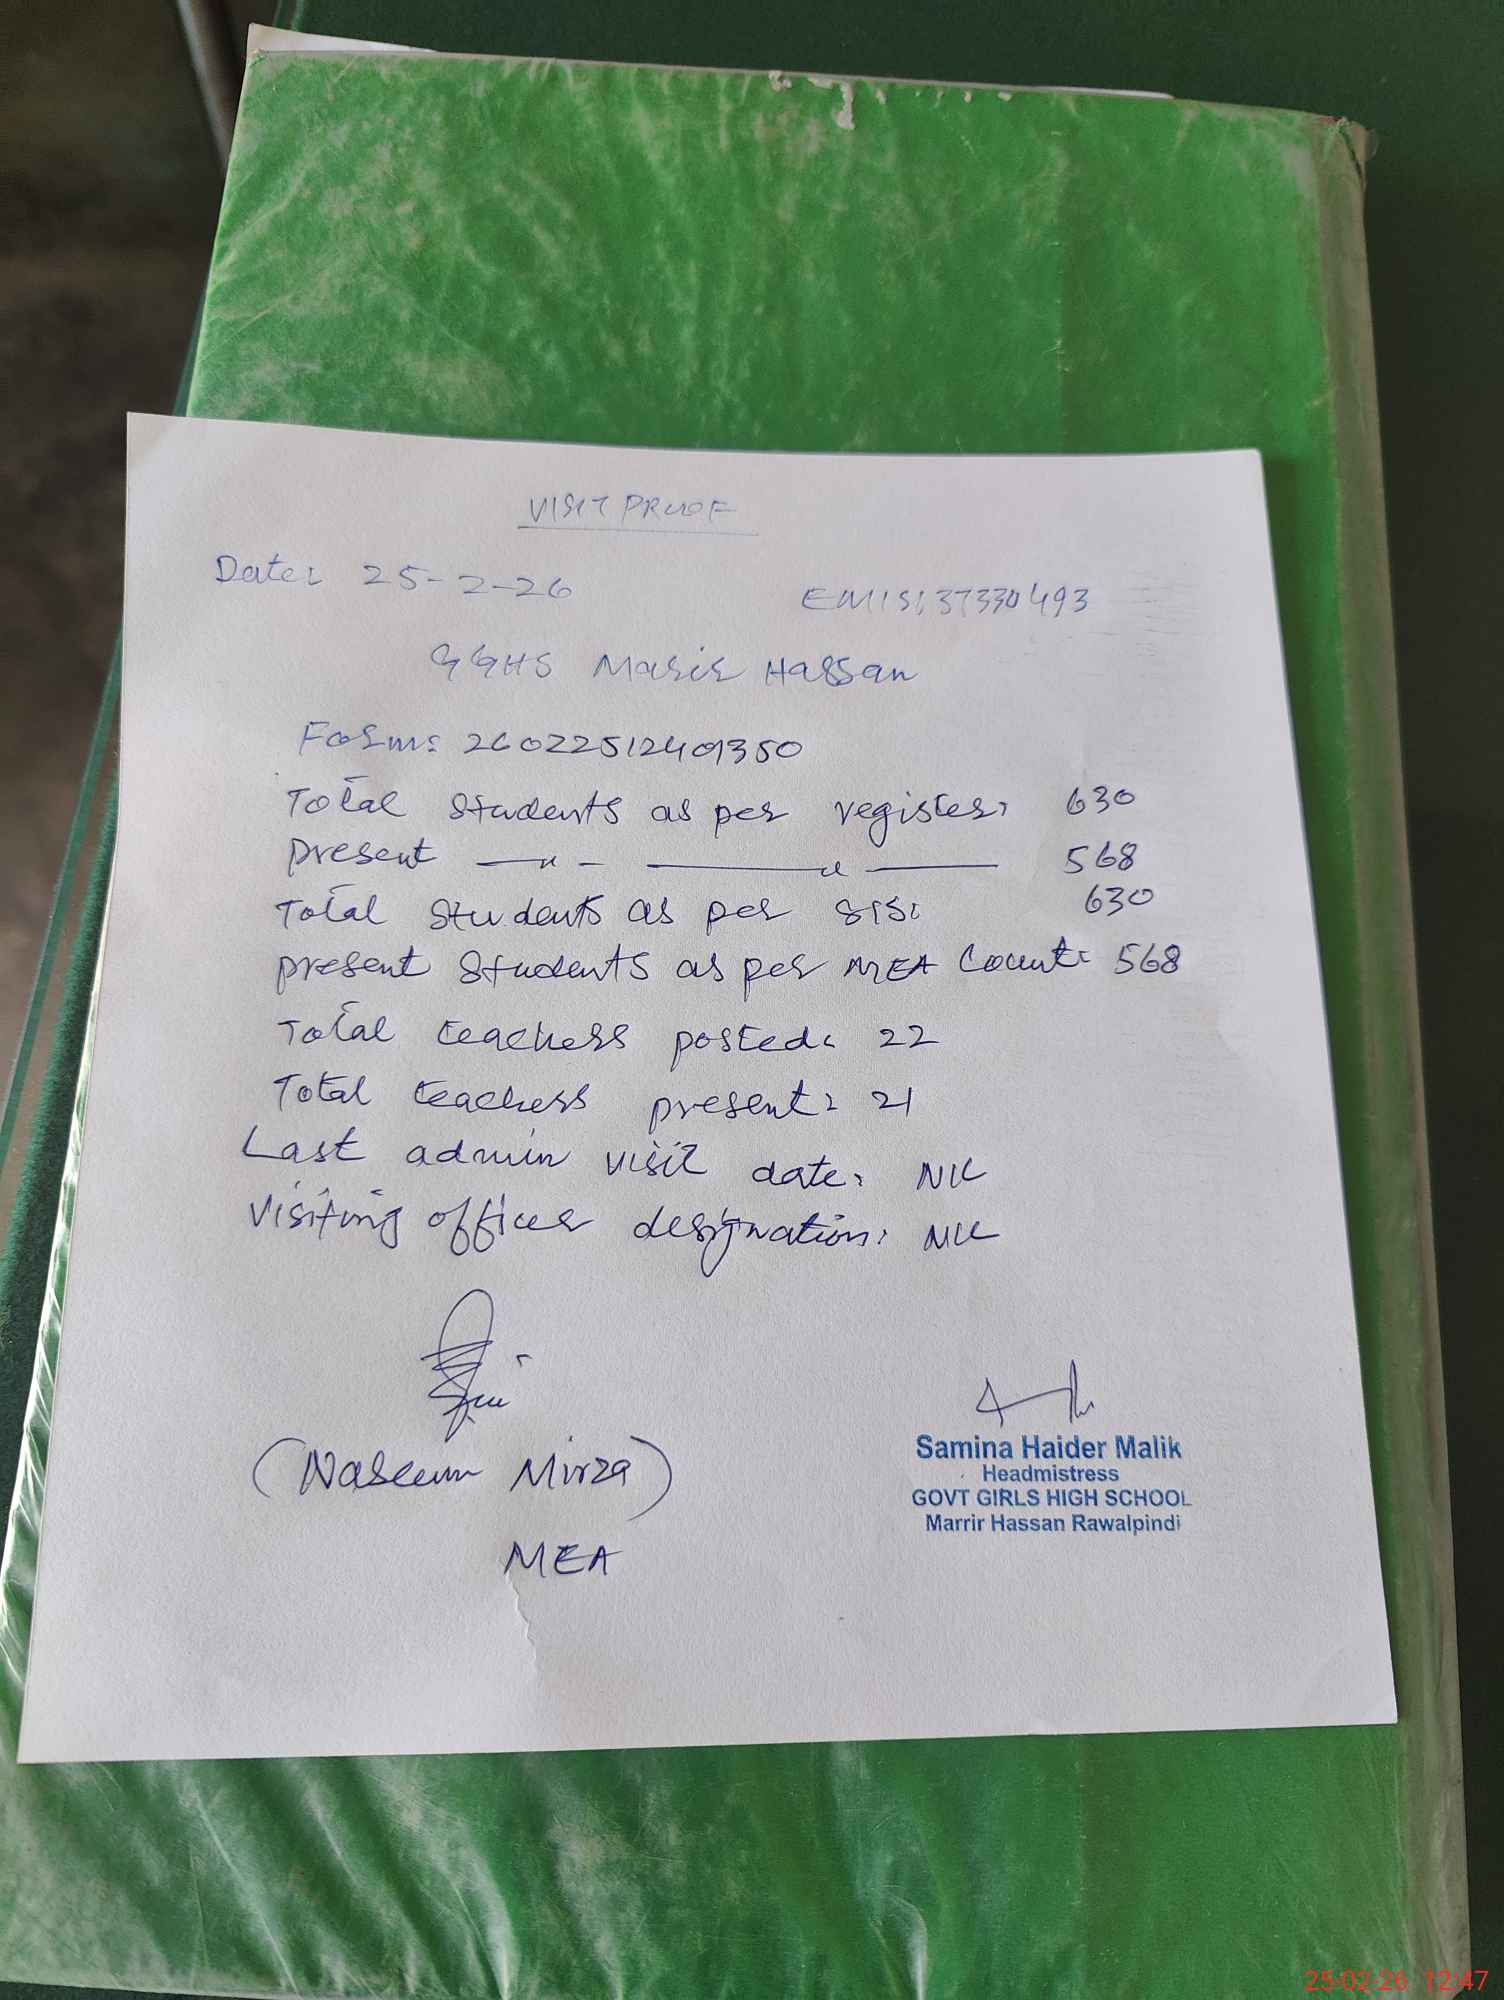 VISIT PROOF
Date: 25-2-26
EMIS: 37330493
GGHS Marir Hassan
Form: 26022512401350
Total Students as per register: 630
Present —〃— ——〃—— 568
Total Students as per SIS: 630
present Students as per MEA Count: 568
Total teachers posted: 22
Total teachers present: 21
Last admin visit date: Nil
Visiting officer designation: Nil
(Naseem Mirza)
MEA
Samina Haider Malik
Headmistress
GOVT GIRLS HIGH SCHOOL
Marrir Hassan Rawalpindi
25-02-26 12:47